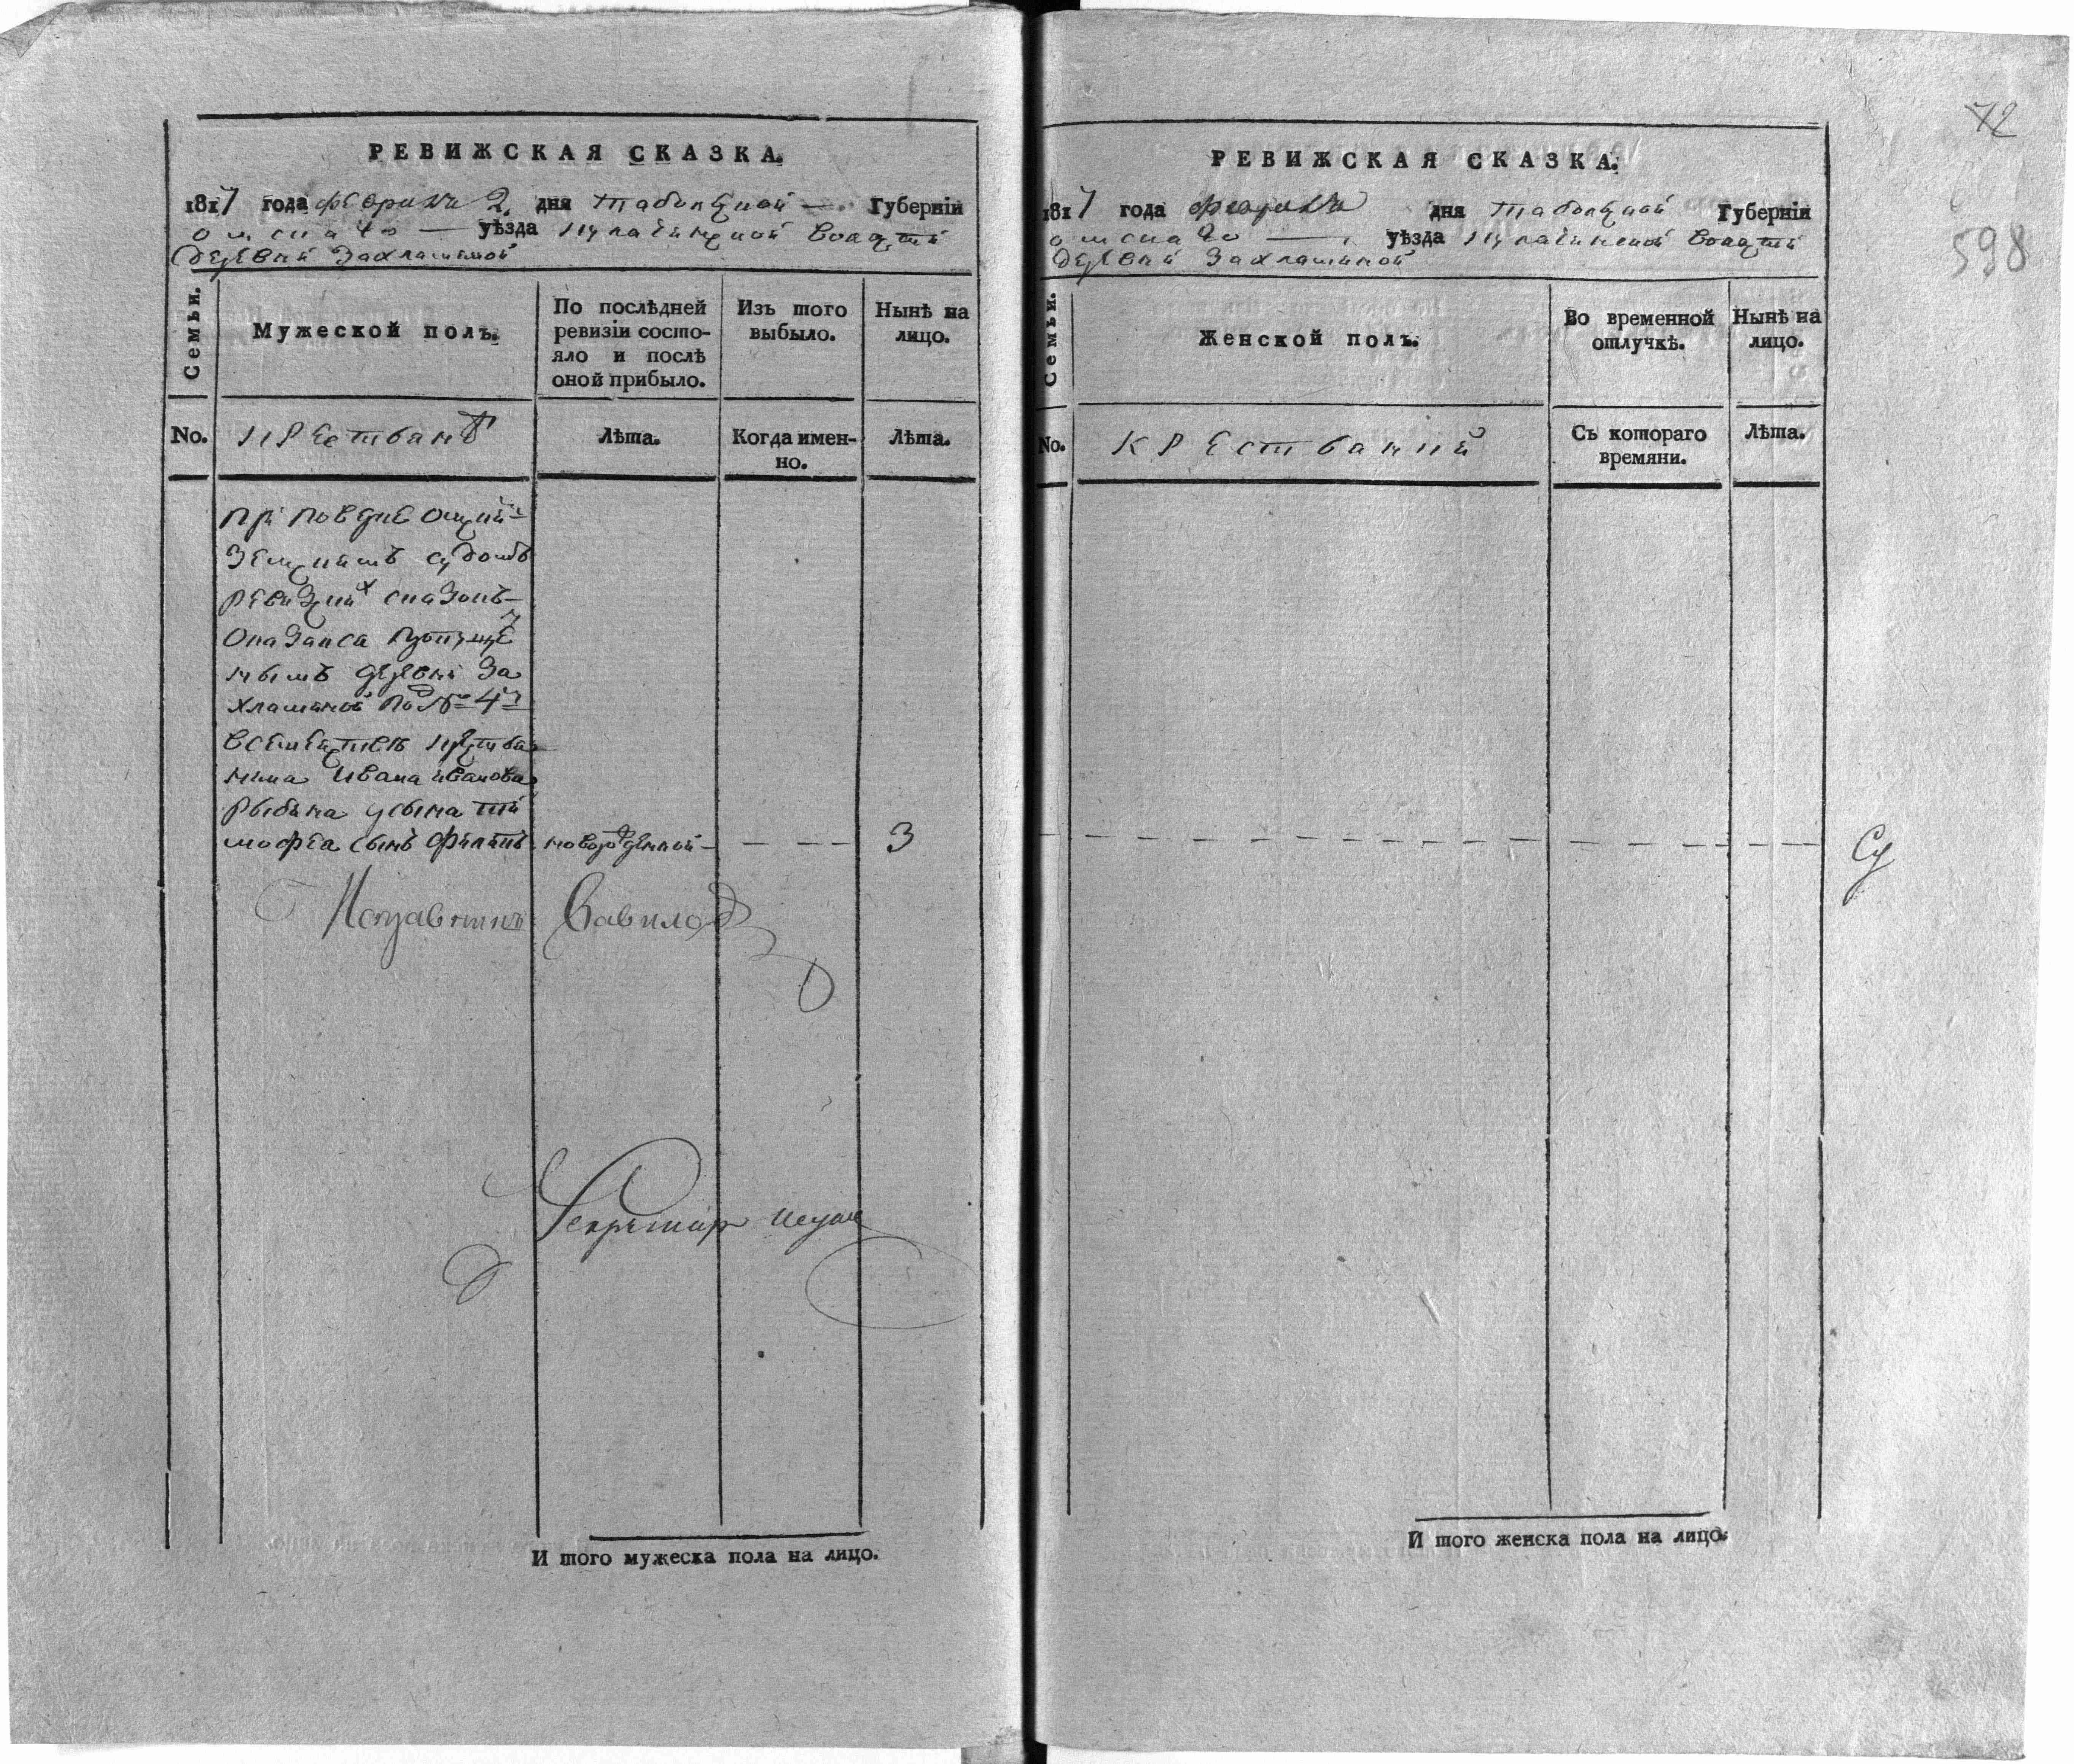 РЕВИЖСКАЯ СКАЗКА.
1817 года февраля 2 дня Тобольской Губерніи
Омскаго уѣзда Кулачинской волости
деревни Захламиной
Семьи.
Мужеской полъ.
По послѣдней ревизіи состо-
яло и послѣ оной прибыло.
Изъ того выбыло.
Нынѣ на лицо.
No.
крестьянъ
Лѣта.
Когда имен-
но.
Лѣта.
При поверке Омским
Земским судомъ
ревизких сказокъ
оказался пропуще
ным деревни За
хламиной под № 4м
в семействе крестья
нина Ивана Иванова
Рыбина у сына Ти
мофеа сынъ Филипъ новорожденной 3
Исправникъ Вавилов
Секретарь
И того мужеска пола на лицо.
72
598
РЕВИЖСКАЯ СКАЗКА.
1817 года февраля дня Тобольской Губерніи
Омскаго уѣзда Кулачинской волости
деревни Захламиной
Семьи.
Женской полъ.
Во временной отлучкѣ.
Нынѣ на лицо.
No.
крестьянки
Съ котораго времяни.
Лѣта.
И того женска пола на лицо.